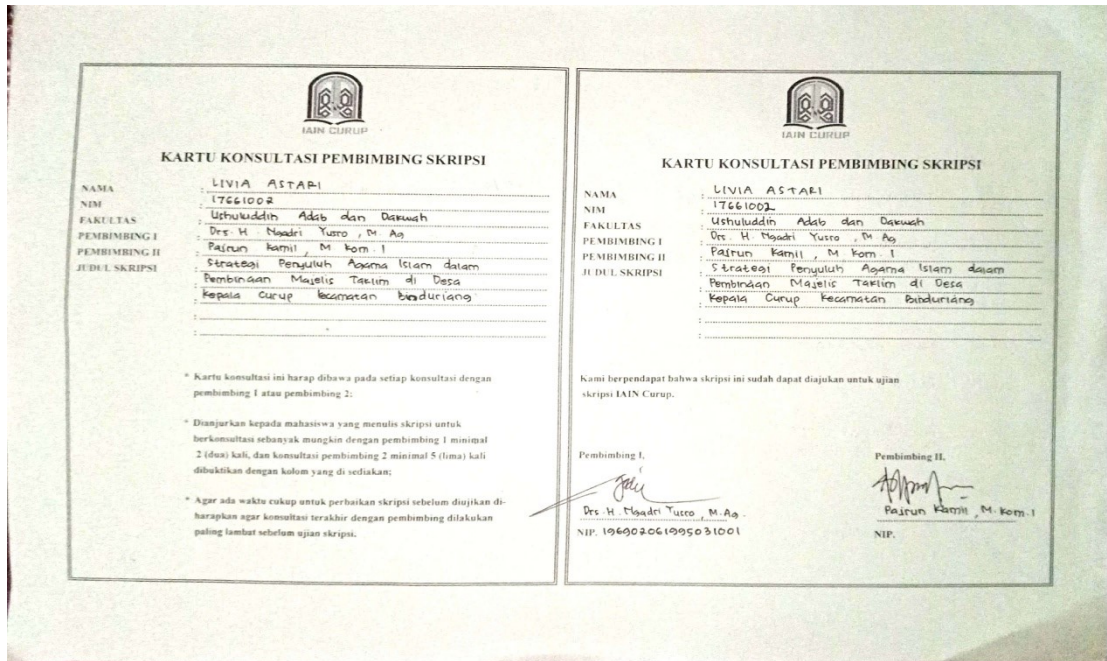 IAIN CURUP
KARTU KONSULTASI PEMBIMBING SKRIPSI
NAMA : LIVIA ASTARI
NIM : 17661002
FAKULTAS : Ushuluddin Adab dan Dakwah
PEMBIMBING I : Drs. H. Ngadri Yusro, M. Ag
PEMBIMBING II : Pajrun Kamil, M Kom. I
JUDUL SKRIPSI : Strategi Penyuluh Agama Islam dalam
: Pembinaan Majelis Taklim di Desa
: Kepala Curup kecamatan Binduriang
:
:
* Kartu konsultasi ini harap dibawa pada setiap konsultasi dengan
pembimbing 1 atau pembimbing 2;
* Dianjurkan kepada mahasiswa yang menulis skripsi untuk
berkonsultasi sebanyak mungkin dengan pembimbing 1 minimal
2 (dua) kali, dan konsultasi pembimbing 2 minimal 5 (lima) kali
dibuktikan dengan kolom yang di sediakan;
* Agar ada waktu cukup untuk perbaikan skripsi sebelum diujikan di-
harapkan agar konsultasi terakhir dengan pembimbing dilakukan
paling lambat sebelum ujian skripsi.
IAIN CURUP
KARTU KONSULTASI PEMBIMBING SKRIPSI
NAMA : LIVIA ASTARI
NIM : 17661002
FAKULTAS : Ushuluddin Adab dan Dakwah
PEMBIMBING I : Drs. H. Ngadri Yusro, M. Ag
PEMBIMBING II : Pajrun Kamil, M Kom. I
JUDUL SKRIPSI : Strategi Penyuluh Agama Islam dalam
: Pembinaan Majelis Taklim di Desa
: Kepala Curup Kecamatan Binduriang
:
:
Kami berpendapat bahwa skripsi ini sudah dapat diajukan untuk ujian
skripsi IAIN Curup.
Pembimbing I,
Drs. H. Ngadri Yusro, M.Ag.
NIP. 196902061995031001
Pembimbing II,
Pajrun Kamil, M.Kom.I
NIP.